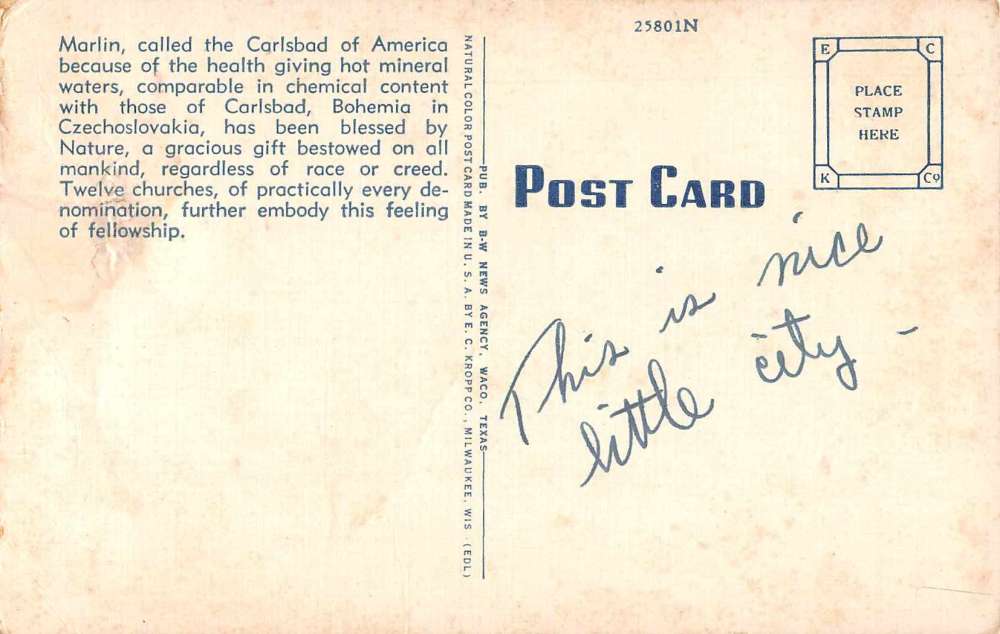 Marlin, called the Carlsbad of America
because of the health giving hot mineral
waters, comparable in chemical content
with those of Carlsbad, Bohemia in
Czechoslovakia, has been blessed by
Nature, a gracious gift bestowed on all
mankind, regardless of race or creed.
Twelve churches, of practically every de-
nomination, further embody this feeling
of fellowship.
NATURAL COLOR POST CARD MADE IN U. S. A. BY E. C. KROPP CO., MILWAUKEE, WIS (EDL)
PUB. BY B-W NEWS AGENCY, WACO, TEXAS
25801N
E C
PLACE
STAMP
HERE
K Co
POST CARD
This is nice
little city -